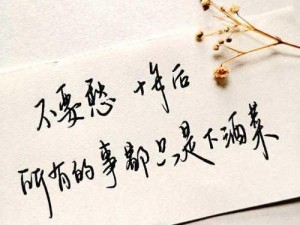 不要愁 十年后
所有的事都只是下酒菜